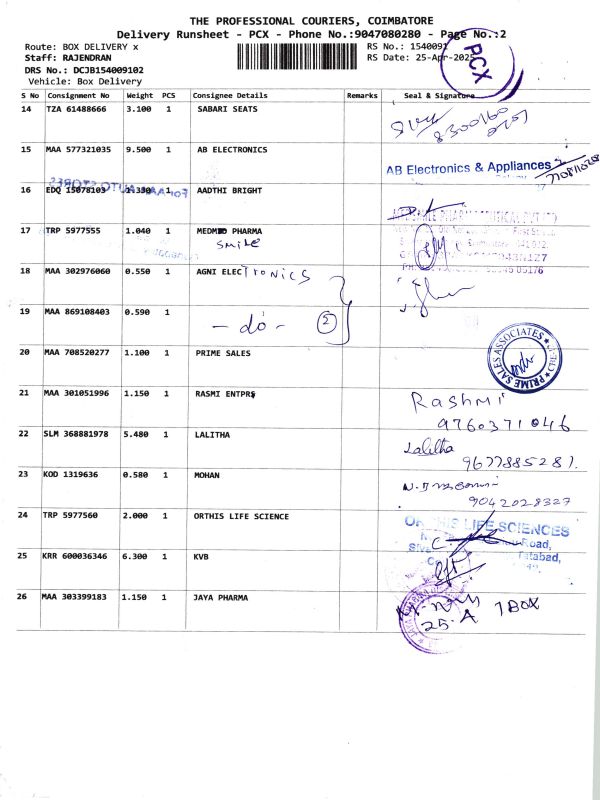 THE PROFESSIONAL COURIERS, COIMBATORE
Delivery Runsheet - PCX - Phone No.:9047080280 - Page No.:2
Route: BOX DELIVERY x
RS No.: 1540091
Staff: RAJENDRAN
RS Date: 25-Apr-2025
DRS No.: DCJB154009102
Vehicle: Box Delivery
PCX
S No Consignment No Weight PCS Consignee Details Remarks Seal & Signature
14 TZA 61488666 3.100 1 SABARI SEATS
15 MAA 577321035 9.500 1 AB ELECTRONICS
AB Electronics & Appliances
16 EDQ 15078103 1.330 1 AADTHI BRIGHT
For AAA AUTO STORES
17 TRP 5977555 1.040 1 MEDMED PHARMA
smile
18 MAA 302976060 0.550 1 AGNI ELECTRONICS
19 MAA 869108403 0.590 1
- do - 2
20 MAA 708520277 1.100 1 PRIME SALES
PRIME SALES ASSOCIATES
21 MAA 301051996 1.150 1 RASMI ENTPRS
Rashmi
9760371046
22 SLM 368881978 5.480 1 LALITHA
Lalitha
9677885281.
23 KOD 1319636 0.580 1 MOHAN
9042028327
24 TRP 5977560 2.000 1 ORTHIS LIFE SCIENCE
ORTHIS LIFE SCIENCES
Road,
Tatabad,
25 KRR 600036346 6.300 1 KVB
26 MAA 303399183 1.150 1 JAYA PHARMA
1 BOX
25.A